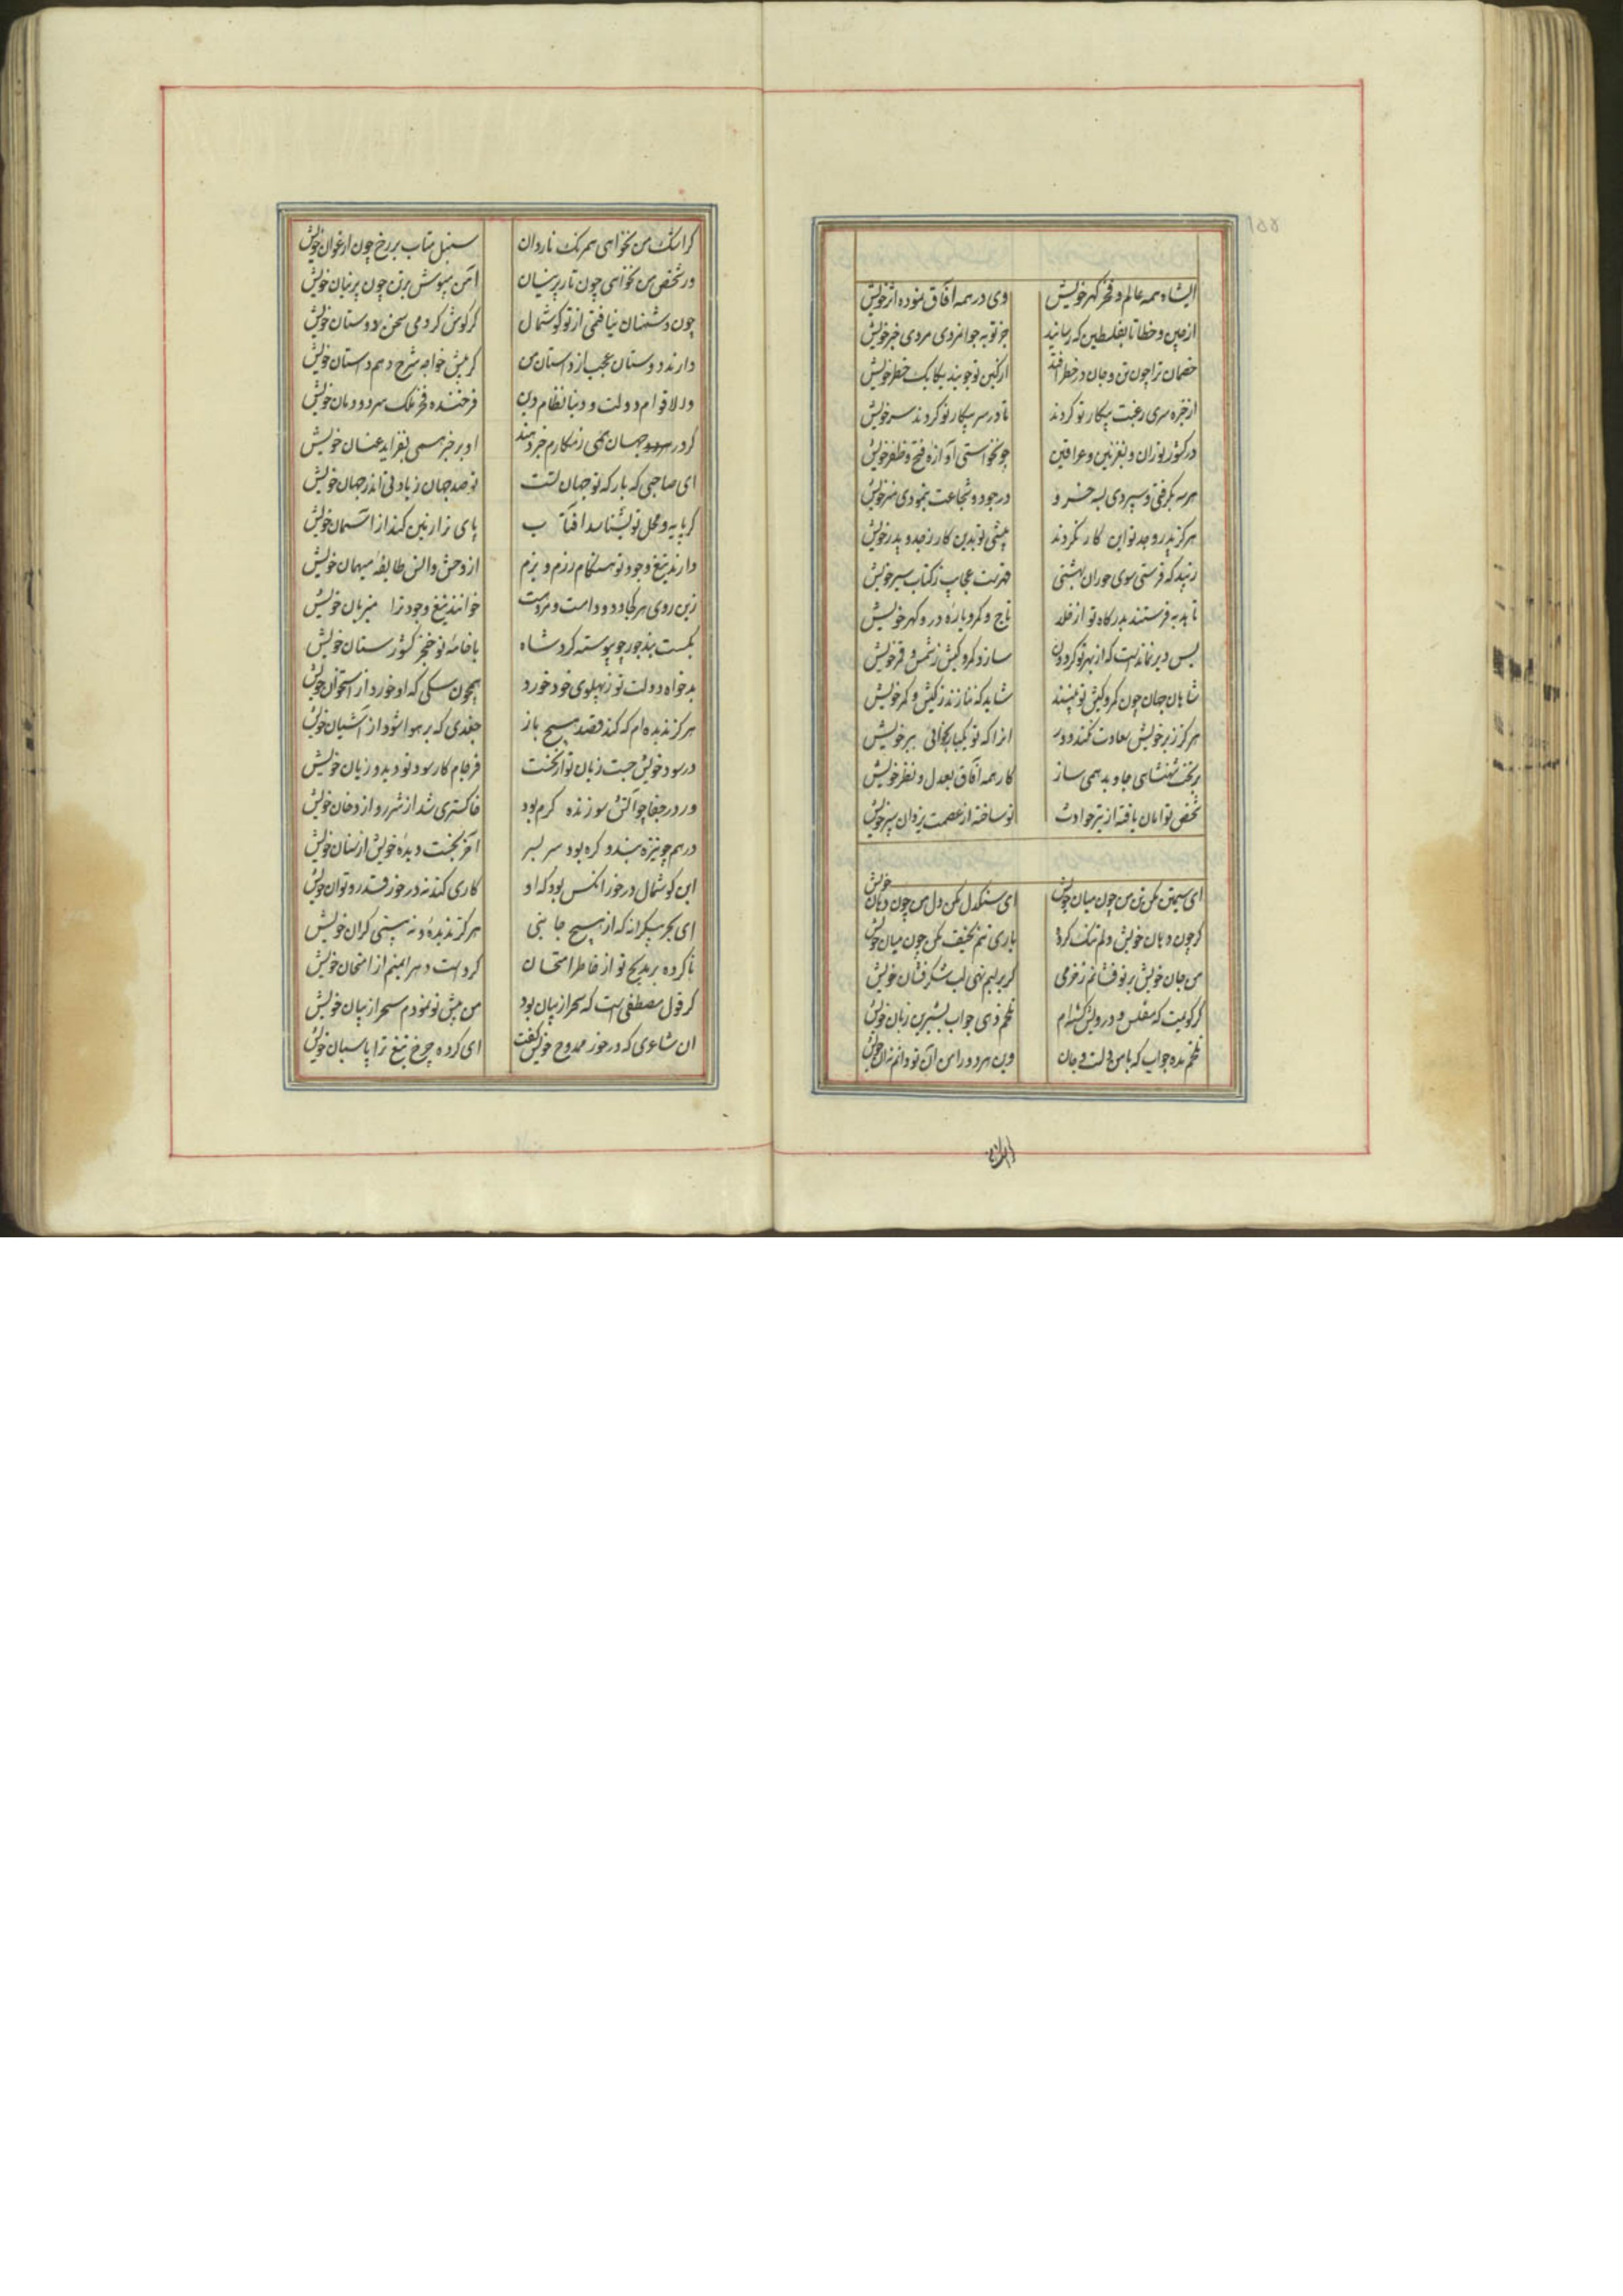 ایشاه همه عالم و فخر گهر خویش وی در همه آفاق نموده اثر خویش
از چین و خطا تا بفلسطین که رسانید جز تو به جوانمردی مردی خبر خویش
خصمان ترا چون تن و جان در خطر افتد از کین تو جویند یکایک خطر خویش
از خیره سری رغبت پیکار تو کردند تا در سر پیکار تو کردند سر خویش
در کشور توران و بغزنین و عراقین چو نخواستی آوازه فتح و ظفر خویش
هر سه بگرفتی و سپردی بسه خسرو در جود و شجاعت بنمودی هنر خویش
هرگز پدر و جد تو این کار نکردند پیشی تو بدین کار ز جد و پدر خویش
زیبد که فرستی سوی حوران بهشتی فهرست عجایب ز کتاب سیر خویش
تا هدیه فرستند بدرگاه تو از خلد تاج و کمر و یاره در و گهر خویش
بس دیر نماندست که از بهر تو گردون سازد کمر و کیش ز شمس و قمر خویش
شاهان جهان چون کمر و کیش تو بینند شاید که ننازند ز کیش و کمر خویش
هرگز ز بر خویش سعادت نکند دور آنرا که تو یکبار بخوانی ببر خویش
بر تخت شهنشاهی جاوید همی ساز کار همه آفاق بعدل و نظر خویش
شخص تو امان یافته از تیر حوادث تو ساخته از عصمت یزدان سپر خویش
ای سیمتن مکن تن من چون میان خویش ای سنگدل مکن دل من چون دهان خویش
گر چون دهان خویش دلم تنگ کرده باری تنم نحیف مکن چون میان خویش
من جان خویش بر تو فشانم ز خرمی گر بر لبم نهی لب شکرفشان خویش
گر گویمت که مفلس و درویش گشته‌ام تلخم دهی جواب بشیرین زبان خویش
تلخم مده جواب که با من دلست و جان وین هر دو را من آن تو دانم نه آن خویش
گر اشک من نخواهی همرنگ ناردان سنبل متاب بر رخ چون ارغوان خویش
ور شخص من نخواهی چون تار پرنیان آهن مپوش بر تن چون پرنیان خویش
چون دشمنان نیافتی از تو گوشمال گر گوش کردمی سخن دوستان خویش
دارند دوستان عجب از داستان من گر پیش خواجه شرح دهم داستان خویش
والا قوام دولت و دنیا نظام دین فرخنده فخر ملک سر دودمان خویش
گردد جهان همی ز مکارم خبر دهند او بر خبر همی بفزاید عیان خویش
ای صاحبی که بارگه تو جهان تست تو صد جهان زیادتی اندر جهان خویش
گر پایه و محل تو بشناسد آفتاب پای ترا زمین کند از آسمان خویش
دارند تیغ و جود تو هنگام رزم و بزم از وحش و انس طایفه میهمان خویش
زین روی هر کجا دد و دامست و مردمست خوانند تیغ و جود ترا میزبان خویش
بگسست بند جور چو پیوسته کرد شاه با خامه تو خنجر کشورستان خویش
بدخواه دولت تو ز پهلوی خود خورد همچون سگی که او خورد از استخوان خویش
هرگز ندیده‌ام که کند قصد هیچ باز جغدی که بر هوا شود از آشیان خویش
در سود خویش جست زیان تو آنکه جست فرجام کار سود تو دید و زیان خویش
ور در جفا چو آتش سوزنده گرم بود خاکستری شد از شرر و از دخان خویش
درهم چو نیزه بند و گره بود سر بسر آخر بخست دیده خویش از سنان خویش
این گوشمال در خور آنکس بود که او کاری کند نه در خور قدر و توان خویش
ای بحر بیکرانه که از هیچ جانبی هرگز ندیده و نه بینی کران خویش
ناکرده بر مدیح تو از خاطر امتحان کردست دهر ایمنم از امتحان خویش
گر قول مصطفی است که سحر از بیان بود من پیش تو نمودم سحر از بیان خویش
آن شاعری که در خور ممدوح خویش گفت ای کرده چرخ تیغ ترا پاسبان خویش